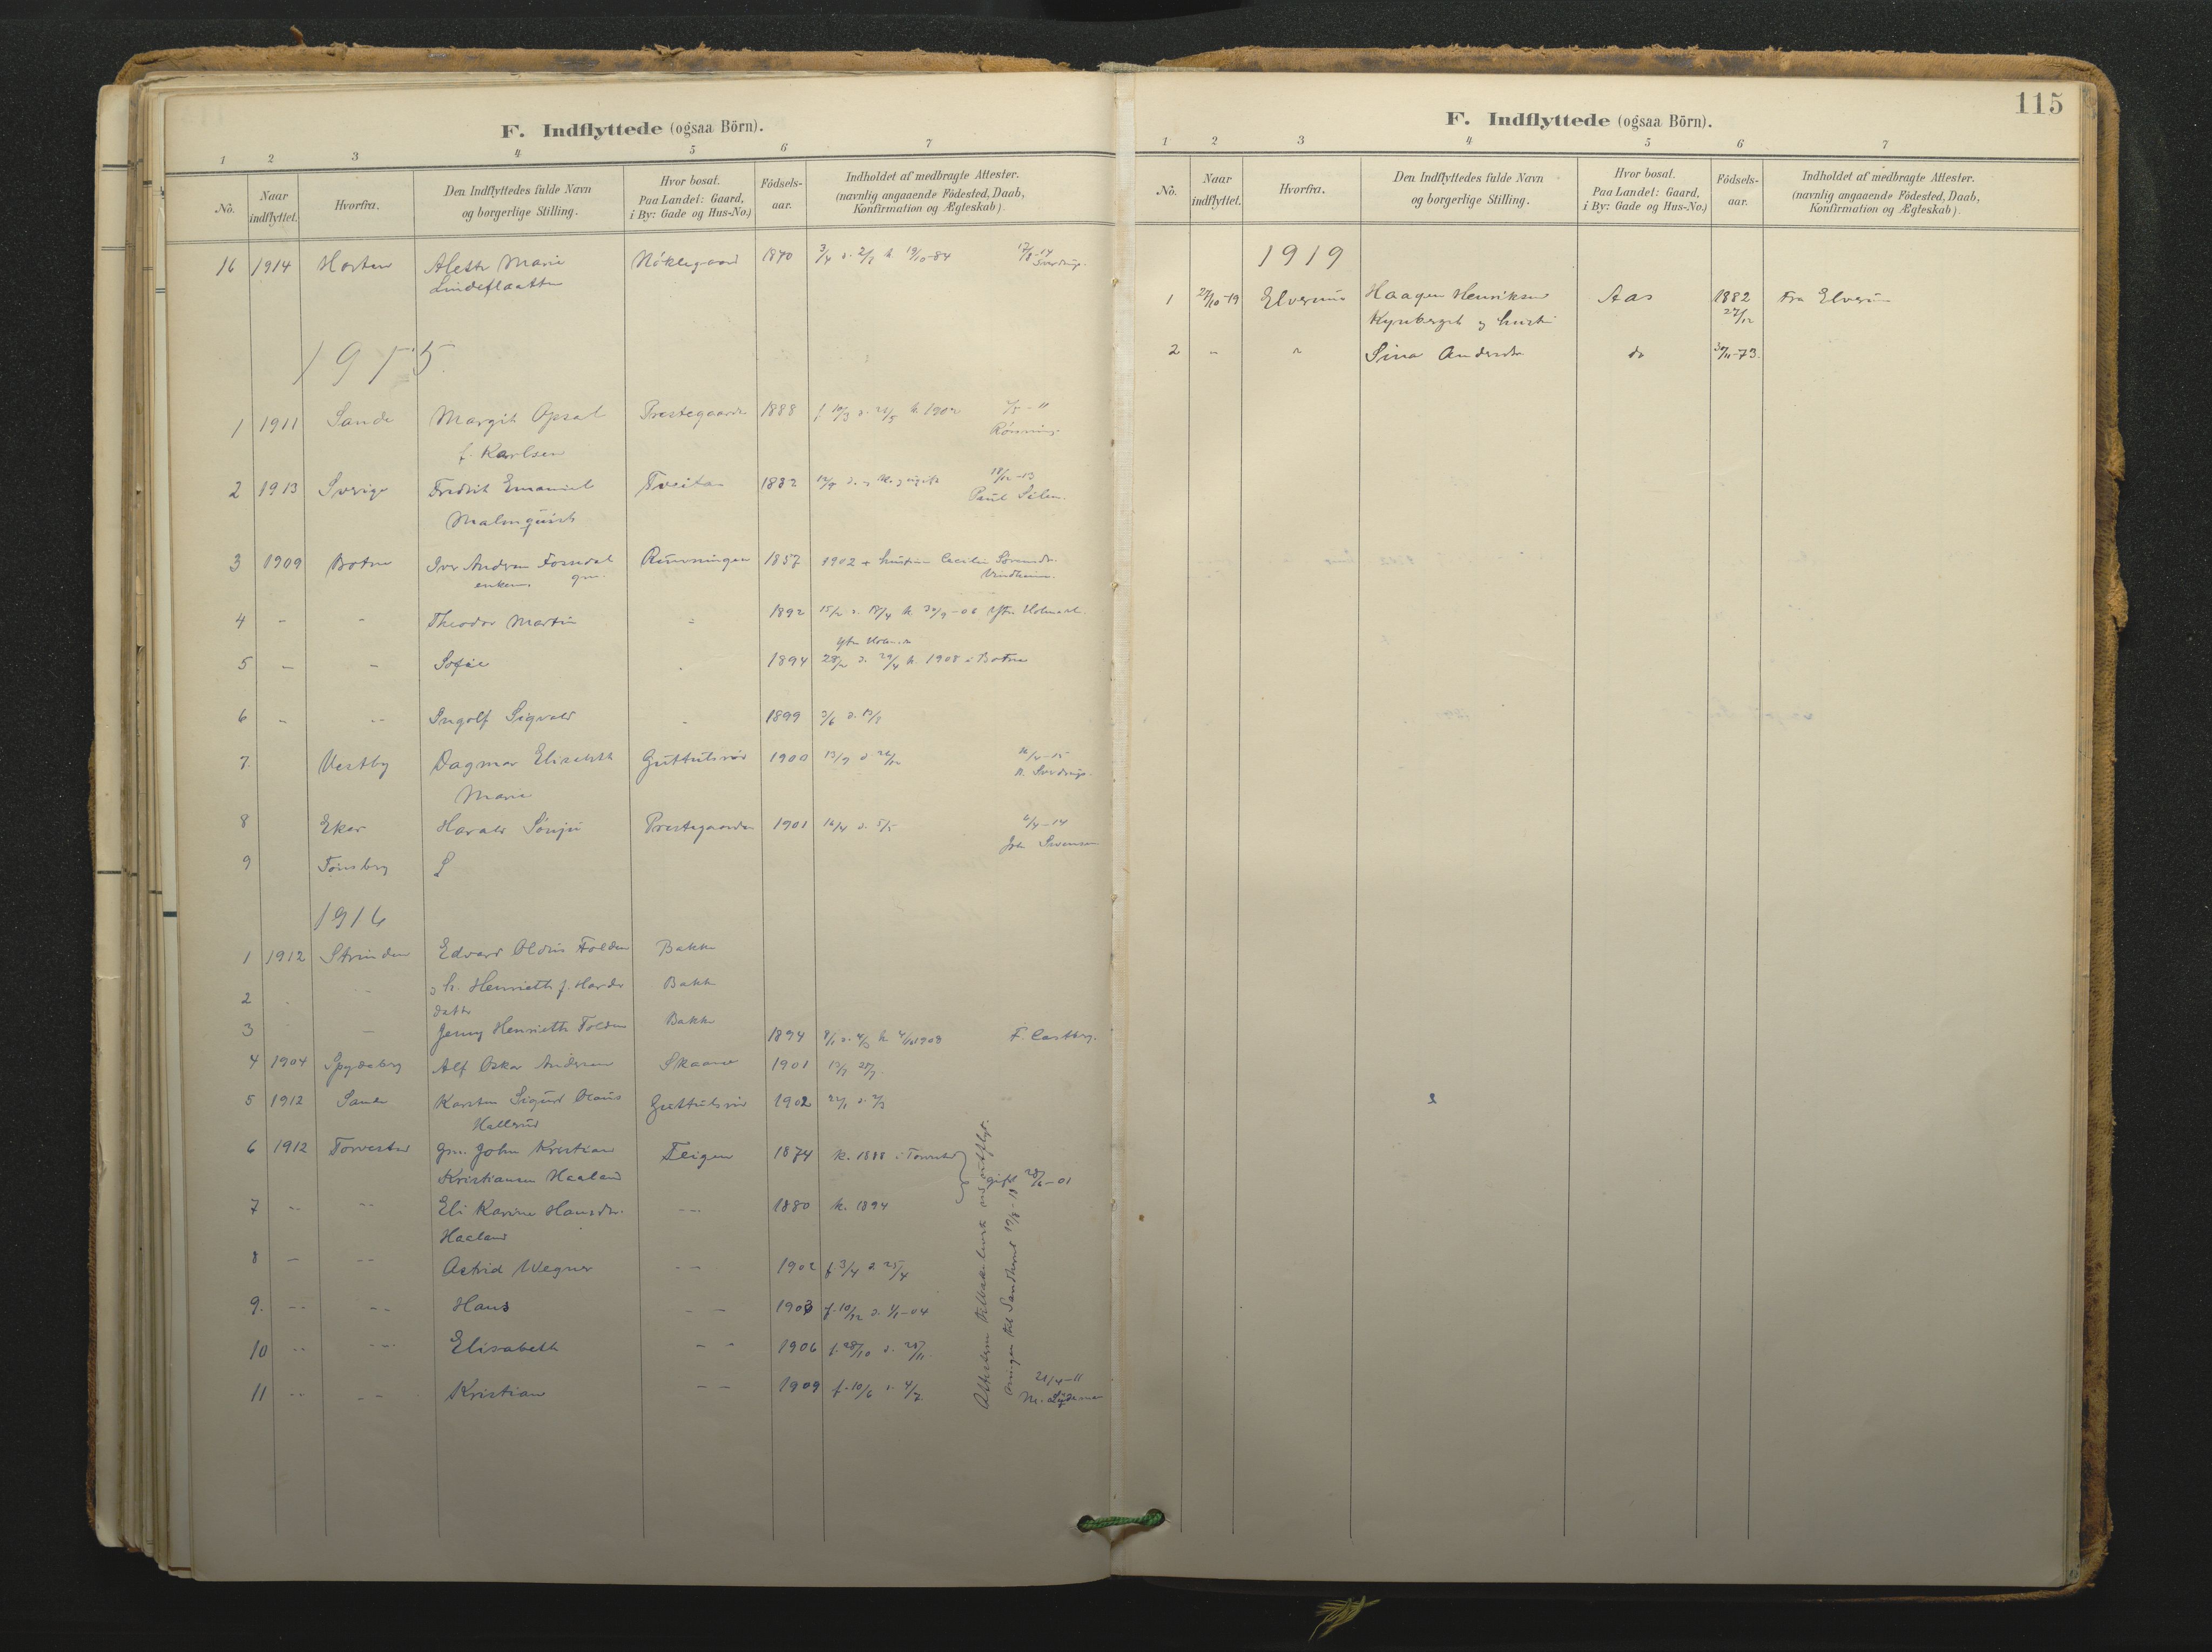 F. Indflyttede (ogsaa Börn).
1 2 3 4 5 6 7
No. Naar indflyttet. Hvorfra. Den Indflyttedes fulde Navn og borgerlige Stilling. Hvor bosat. Paa Landet: Gaard, i By: Gade og Hus-No.) Födsels-aar. Indholdet af medbragte Attester. (navnlig angaaende Födested, Daab, Konfirmation og Ægteskab).
16 1914 Horten Alette Marie Nöklegaard 1870 3/4 d. 2/8 k 19/10-84 17/8-14
Lindeflaatten Sverdrup.
1915
1 1911 Sande Margit Opsal Prestegaarden 1888 f. 10/3 d. 21/5 k. 1902 7/5-11
f. Karlsen
2 1913 Sverige Fredrik Emanuel Tveitan 1882 18/12-13
Malmquist Paul
3 1909 Botne Iver Andreas Fossdal 1857 1902 + hustru Cecilie
enkem. gm.
4 - - Theodor Martin 1892 15/2 d. 18/4 k. 30/9-06
5 - - Sofie 1894 28/2 d. 29/4 k. 1908 i Botne
6 - -- Ingolf Sigvald 1899 3/6 d. 13/8
7. Vestby Dagmar Elisabeth Guttulsröd 1900 13/9 d 26/12
Marie Sverdrup.
8 Eker Harald Sönju Prestegaarden 1901 16/4 d. 5/5 6/4-14
Svensen
9 Tönsberg S
1916
1 1912 Strinden Edvard Folden Bakke
2 - h. Henriette f. Bakke
datter
3 - Jenny Henriette Folden Bakke 1894 k 4/10 1908 F. Castberg.
4 1904 Spydeberg Alf Oskar Andersen Skaane 1901
5 1912 Sande Karsten Sigurd Olaus Guttulsröd 1902
Hallerud
6 1912 Torvestad gm. John Kristian Teigen 1874 k. 1888 i Torvestad
Kristiansen Haaland gift 28/6-01
7 -- -- Eli Karine Hansdtr. --- 1880 k. 1894
Haaland
8 - -- Astrid Wegner -- 1902 f 3/4 d 25/4
9. -- -- Hans -- 1903 f. 10/12 d. 1/1-04
10 -- --- Elisabeth -- 1906 f. 28/10 d. 25/11.
11 -- -- Kristian -- 1909 f. 10/6 d. 4/7 21/4-11
Attesterne tilbakelevert ved utflyt-
ningen til Sandherred 19/8-18
115
F. Indflyttede (ogsaa Börn).
1 2 3 4 5 6 7
No. Naar indflyttet. Hvorfra. Den Indflyttedes fulde Navn og borgerlige Stilling. Hvor bosat. Paa Landet: Gaard, i By: Gade og Hus-No.) Födsels-aar. Indholdet af medbragte Attester. (navnlig angaaende Födested, Daab, Konfirmation og Ægteskab).
1919
1 27/10-19 Elverum Haagen Henriksen Aas 1882 Fra Elverum
Kynberget og hustru 27/12
2 - " Sina Andersdtr do 30/11-73.